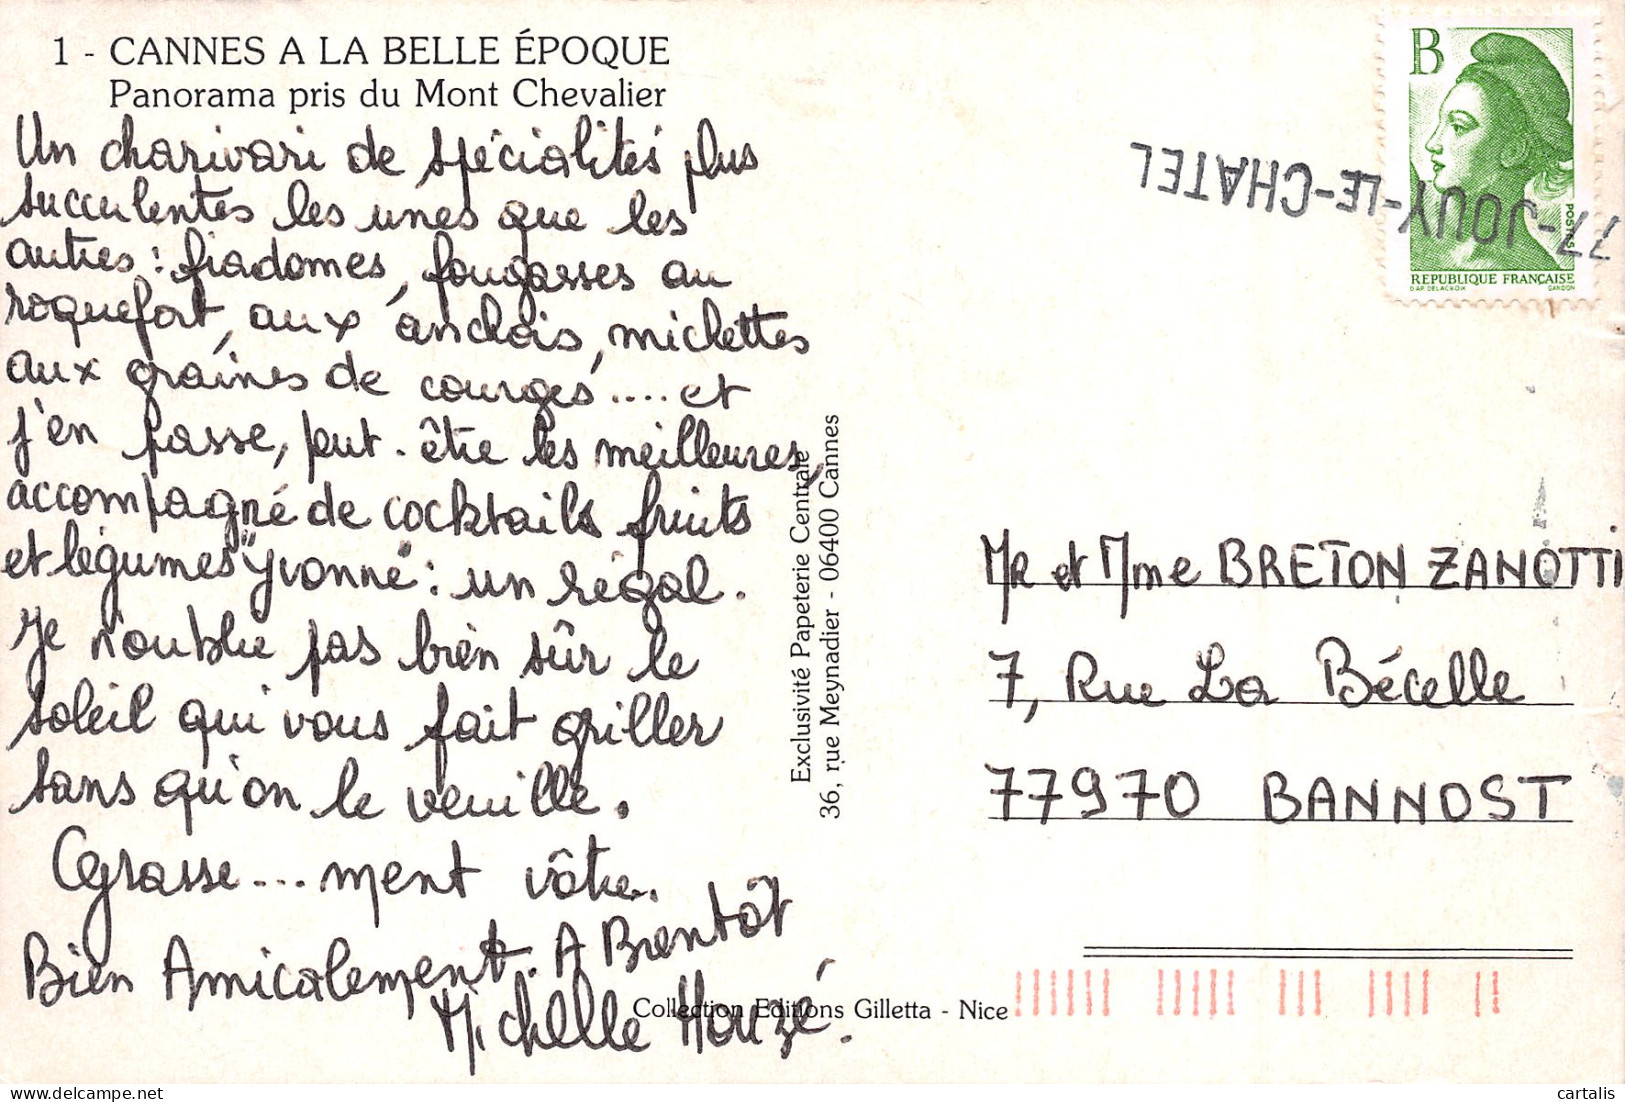 1 - CANNES A LA BELLE ÉPOQUE
Panorama pris du Mont Chevalier
Un charivari de spécialités plus
succulentes les unes que les
autres : fiadomes, fougasses au
roquefort, aux anchois, michettes
aux graines de courges .... et
j'en passe, peut-être les meilleures,
accompagné de cocktails fruits
et légumes "Yvonne" : un régal.
Je n'oublie pas bien sûr le
soleil qui vous fait griller
sans qu'on le veuille.
Grasse ... ment vôtre.
Bien Amicalement. A Bientôt
Michelle Houzé.
Exclusivité Papeterie Centrale
36, rue Meynadier - 06400 Cannes
Collection Editions Gilletta - Nice
B
POSTES
REPUBLIQUE FRANÇAISE
D'AP. DELACROIX GANDON
77-JOUY-LE-CHATEL
Mr et Mme BRETON ZANOTTI
7, Rue La Bécelle
77970 BANNOST
delcampe.net
cartalis